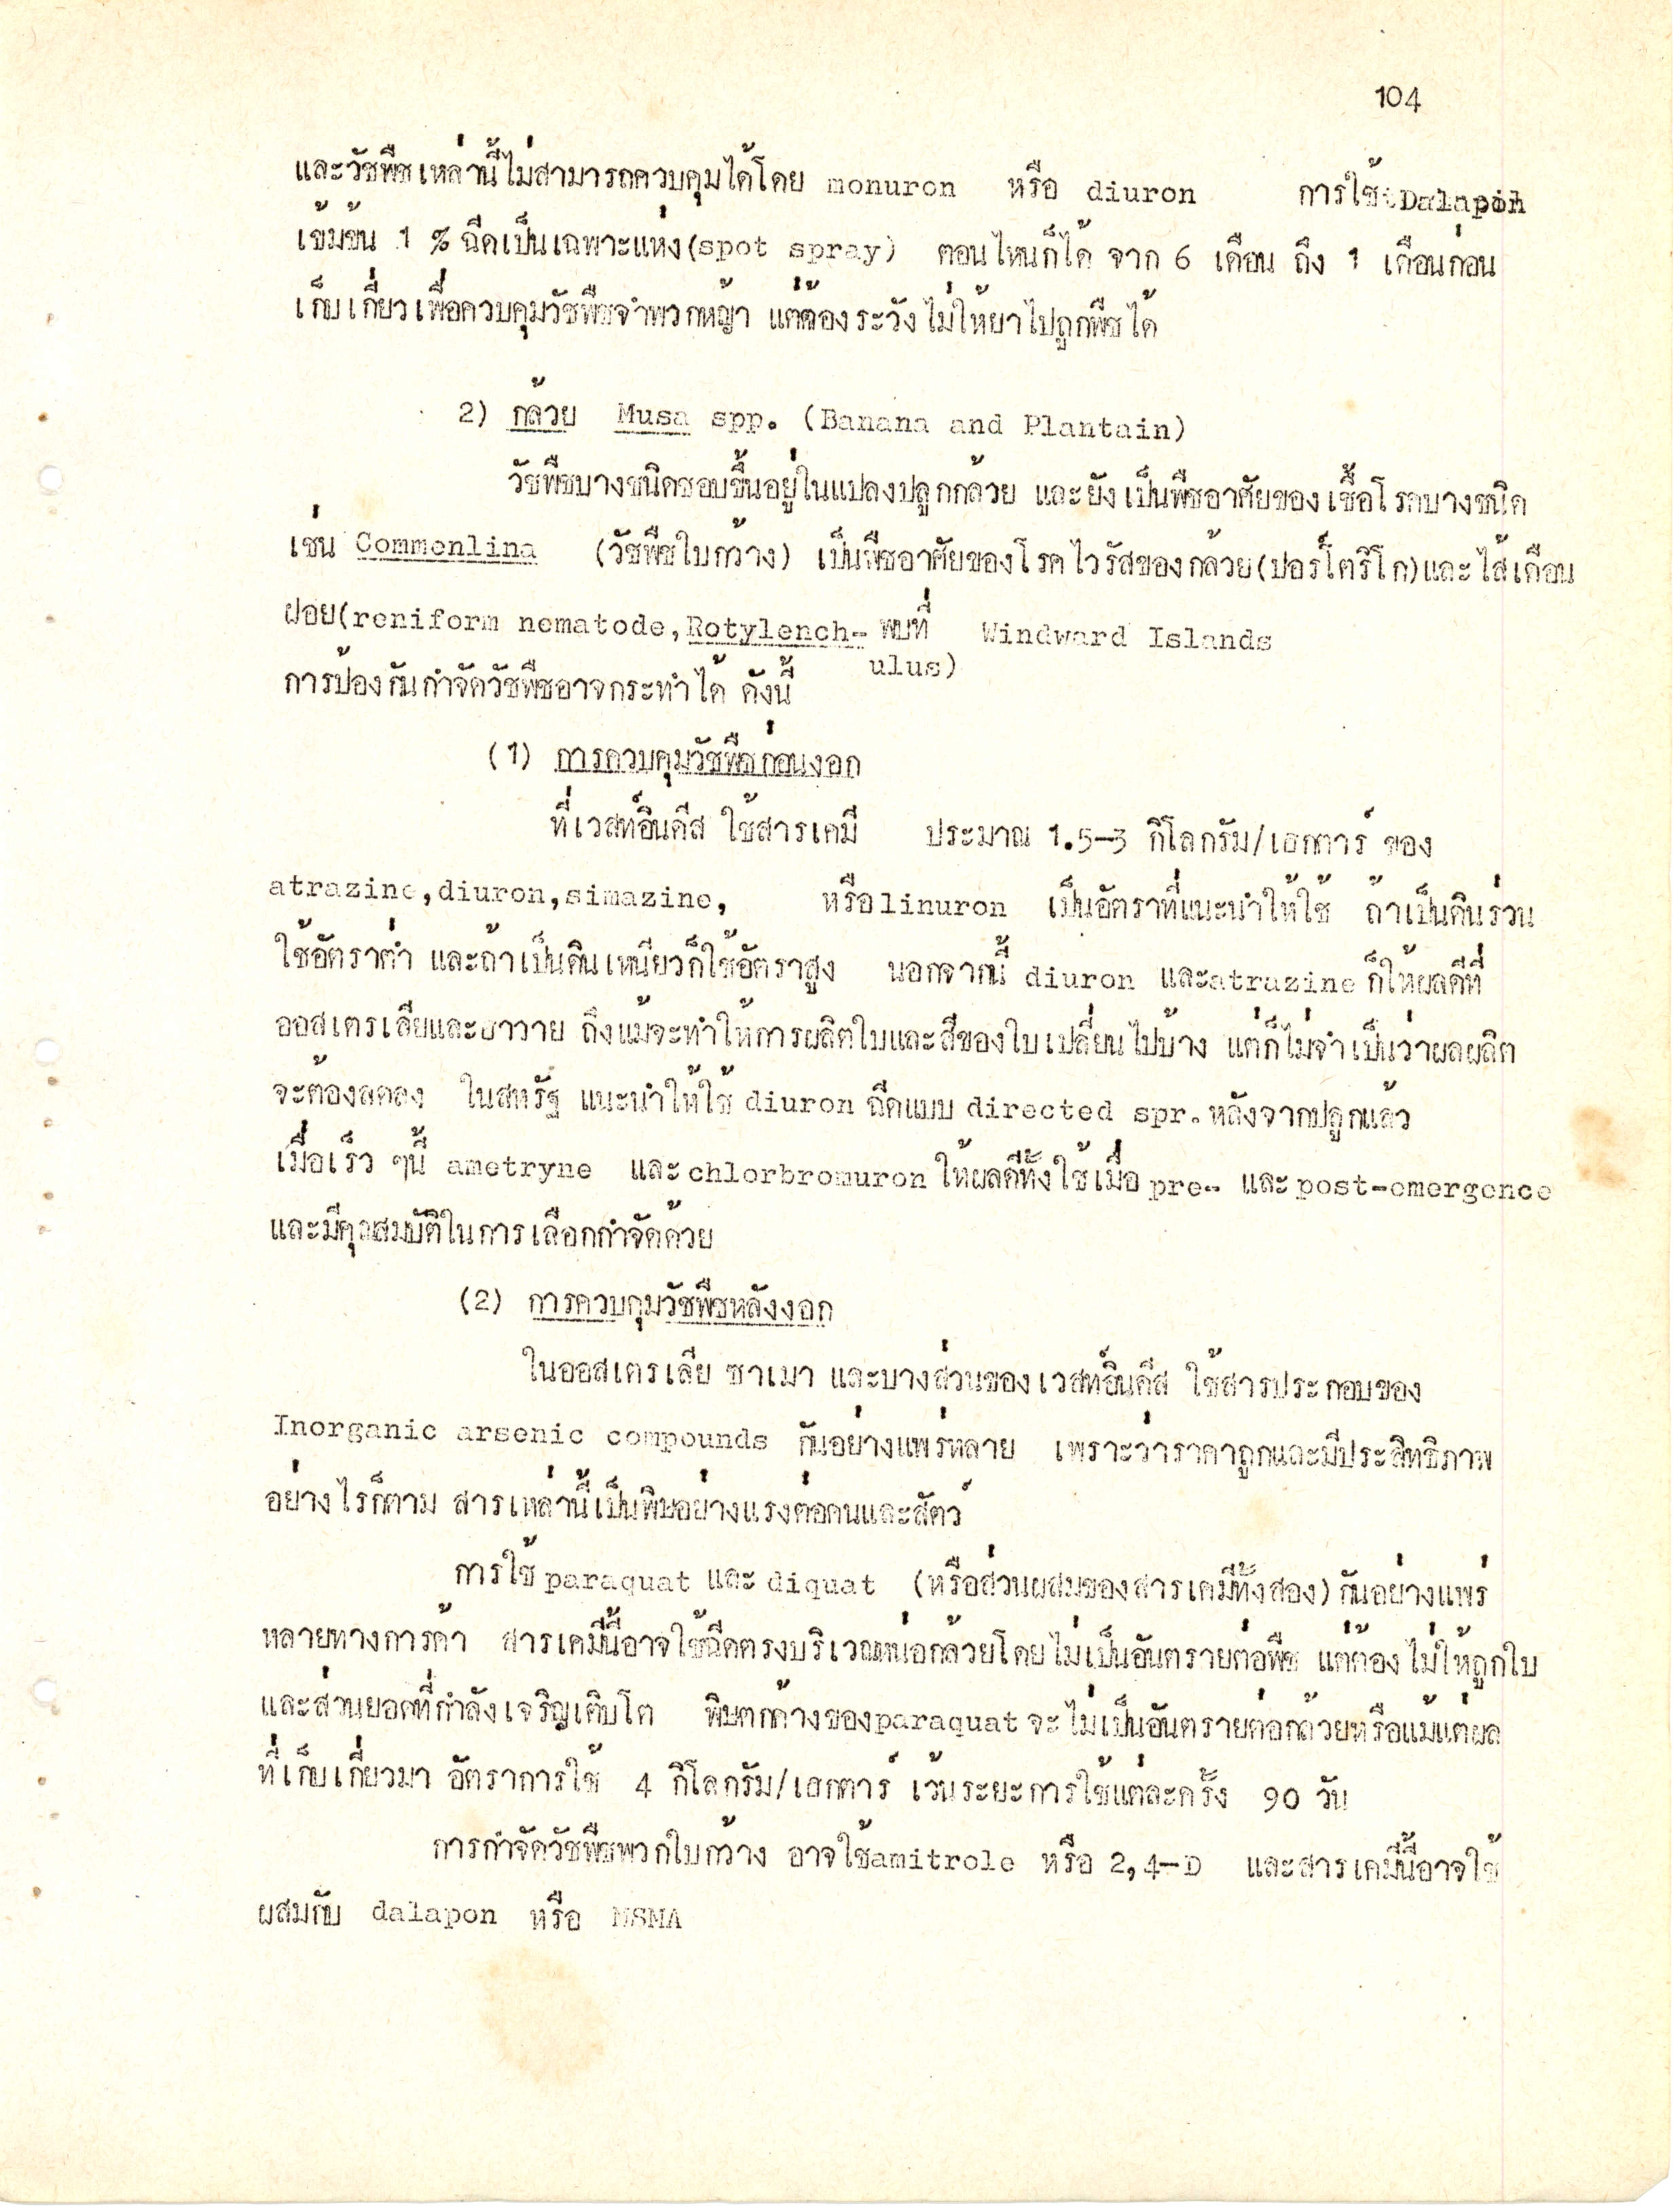 104
และวัชพืชเหล่านี้ไม่สามารถควบคุมได้โดย monuron หรือ diuron การใช้ Dalapon
เข้มข้น 1 % ฉีดเป็นเฉพาะแห่ง(spot spray) ตอนไหนก็ได้ จาก 6 เดือน ถึง 1 เดือนก่อน
เก็บเกี่ยวเพื่อควบคุมวัชพืชจำพวกหญ้า แต่ต้องระวังไม่ให้ยาไปถูกพืชได้
2) กล้วย Musa spp. (Banana and Plantain)
วัชพืชบางชนิดชอบขึ้นอยู่ในแปลงปลูกกล้วย และยังเป็นพืชอาศัยของเชื้อโรคบางชนิด
เช่น Commenlina (วัชพืชใบกว้าง) เป็นพืชอาศัยของโรคไวรัสของกล้วย(ปอร์โตริโก)และไส้เดือน
ฝอย(reniform nematode,Rotylench- พบที่ Windward Islands
ulus)
การป้องกันกำจัดวัชพืชอาจกระทำได้ ดังนี้
(1) การควบคุมวัชพืชก่อนงอก
ที่เวสท์อินดีส ใช้สารเคมี ประมาณ 1.5-3 กิโลกรัม/เฮกตาร์ ของ
atrazine,diuron,simazine, หรือlinuron เป็นอัตราที่แนะนำให้ใช้ ถ้าเป็นดินร่วน
ใช้อัตราต่ำ และถ้าเป็นดินเหนียวก็ใช้อัตราสูง นอกจากนี้ diuron และatrazine ก็ให้ผลดีที่
ออสเตรเลียและฮาวาย ถึงแม้จะทำให้การผลิตใบและสีของใบเปลี่ยนไปบ้าง แต่ก็ไม่จำเป็นว่าผลผลิต
จะต้องลดลง ในสหรัฐ แนะนำให้ใช้ diuron ฉีดแบบ directed spr. หลังจากปลูกแล้ว
เมื่อเร็ว ๆนี้ ametryne และchlorbromuron ให้ผลดีทั้งใช้เมื่อ pre- และ post-emergence
และมีคุณสมบัติในการเลือกกำจัดด้วย
(2) การควบคุมวัชพืชหลังงอก
ในออสเตรเลีย ซาเมา และบางส่วนของเวสท์อินดีส ใช้สารประกอบของ
Inorganic arsenic compounds กันอย่างแพร่หลาย เพราะว่าราคาถูกและมีประสิทธิภาพ
อย่างไรก็ตาม สารเหล่านี้เป็นพิษอย่างแรงต่อคนและสัตว์
การใช้ paraquat และ diquat (หรือส่วนผสมของสารเคมีทั้งสอง) กันอย่างแพร่
หลายทางการค้า สารเคมีนี้อาจใช้ฉีดตรงบริเวณหน่อกล้วยโดยไม่เป็นอันตรายต่อพืช แต่ต้องไม่ให้ถูกใบ
และส่วนยอดที่กำลังเจริญเติบโต พิษตกค้างของparaquat จะไม่เป็นอันตรายต่อกล้วยหรือแม้แต่ผล
ที่เก็บเกี่ยวมา อัตราการใช้ 4 กิโลกรัม/เฮกตาร์ เว้นระยะการใช้แต่ละครั้ง 90 วัน
การกำจัดวัชพืชพวกใบกว้าง อาจใช้amitrole หรือ 2,4-D และสารเคมีนี้อาจใช้
ผสมกับ dalapon หรือ MSMA